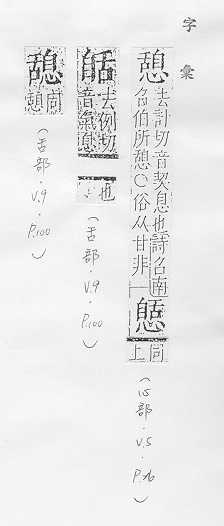 字彙
憩
去計切音契息也詩召南
召伯所憩○俗从甘非
同上
(心部.V.5.P.76)
去例切
音氣息
也
(舌部.V.9.P.100)
同
(舌部.V.9.P.100)